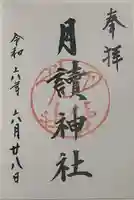 奉拝
月讀神社
令和六年
六月廿八日